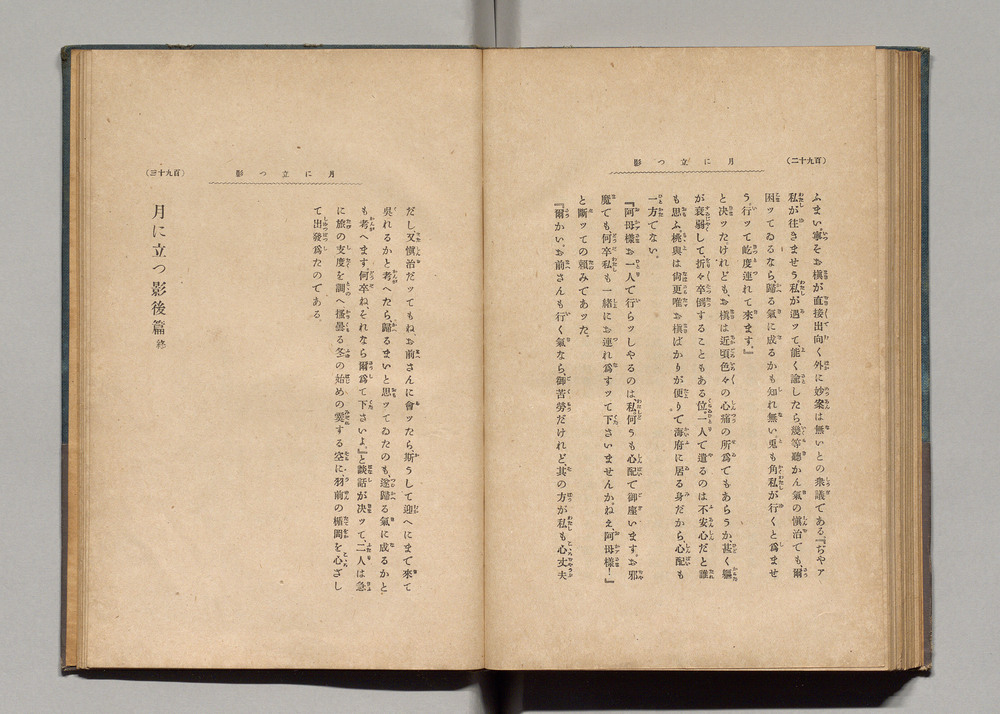 （百九十二）
月に立つ影
ふまい、寧そお槇が直接出向く外に妙案は無いとの衆議である。『ぢやァ
私が往きませう、私が遇ッて、能く諭したら、幾等聽かん氣の愼治でも、爾
困ッてゐるなら、歸る氣に成るかも知れ無い、兎も角私が行くと爲ませ
う、行ッて屹度連れて來ます。』
と決ッたけれども、お槇は近頃色々の心痛の所爲でもあらうか、甚く軀
が衰弱して、折々卒倒することもある位、一人で遣るのは不安心だと誰
も思ふ、桃與は尙更唯お槇ばかりが便りで海府に居る身だから、心配も
一方でない。
『阿母樣お一人で行らッしやるのは、私何うも心配で御座います。お邪
魔でも何卒私も一緖にお連れ爲すッて下さいませんかねえ、阿母樣！』
と斷ッての頼みであッた。
『爾かい。お前さんも行く氣なら、御苦勞だけれど、其の方が私も心丈夫
月に立つ影
（百九十三）
だし又愼治だッてもね、お前さんに會ッたら、斯うして迎へにまで來て
吳れるかと考へたら、歸るまいと思ッてゐたのも、遂歸る氣に成るかと
も考へます、何卒ね、それなら爾爲て下さいよ。』と談話が決ッて、二人は急
に旅の支度を調へ、搔曇る冬の始めの霙する空に、羽前の楯岡を心ざし
て出發爲たのである。
月に立つ影後篇 終